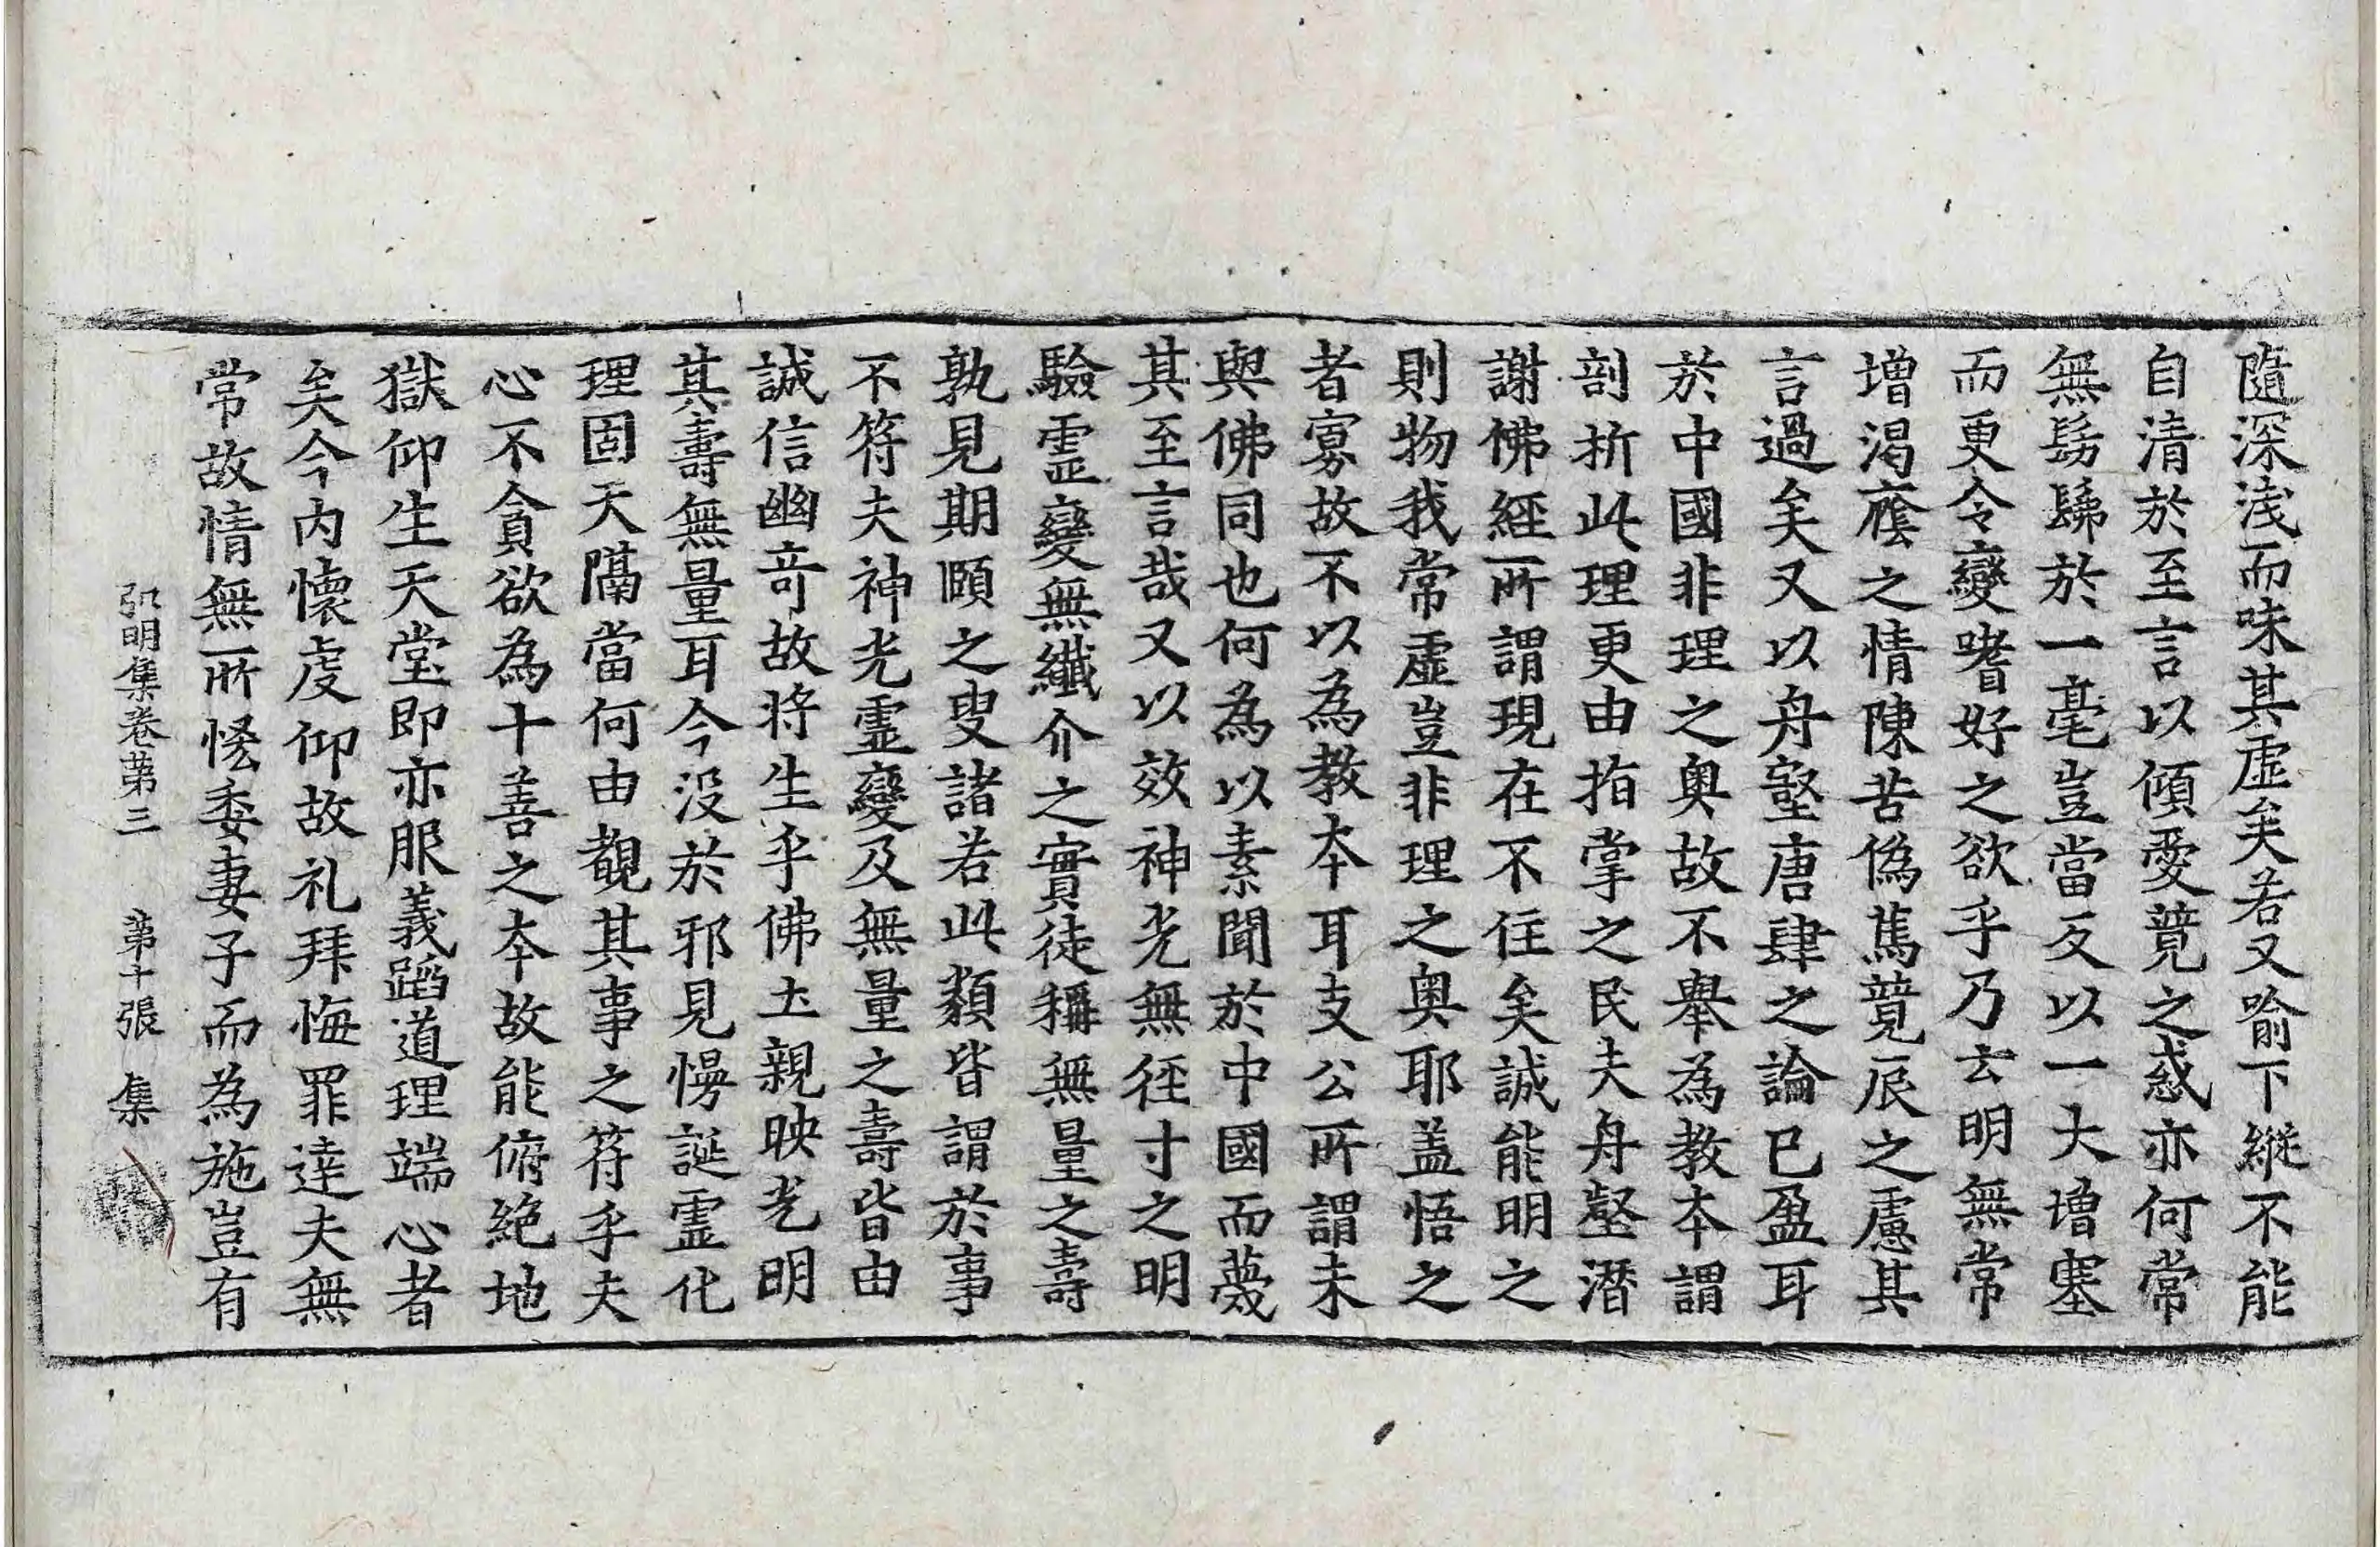 隨深淺而味其虛矣若又喻下縱不能
自清於至言以傾愛競之惑亦何常
無髣髴於一毫豈當反以一大增塞
而更令變嗜好之欲乎乃云明無常
增渴癊之情陳苦僞篤競辰之慮其
言過矣又以舟壑唐肆之論已盈耳
於中國非理之奧故不舉為教本謂
剖折此理更由指掌之民夫舟壑潛
謝佛經所謂現在不住矣誠能明之
則物我常虛豈非理之奧耶盖悟之
者寡故不以為教本耳支公所謂未
與佛同也何為以素聞於中國而蔑
其至言哉又以效神光無徑寸之明
驗靈變無纖介之實徒稱無量之壽
孰見期頤之叟諸若此類皆謂於事
不符夫神光靈變及無量之壽皆由
誠信幽竒故將生乎佛土親映光明
其壽無量耳今沒於邪見慢誕靈化
理固天隔當何由覩其事之符乎夫
心不貪欲為十善之本故能俯絶地
獄仰生天堂即亦服義蹈道理端心者
矣今内懷虔仰故礼拜悔罪達夫無
常故情無所恡委妻子而為施豈有
弘明集卷第三 第十張 集